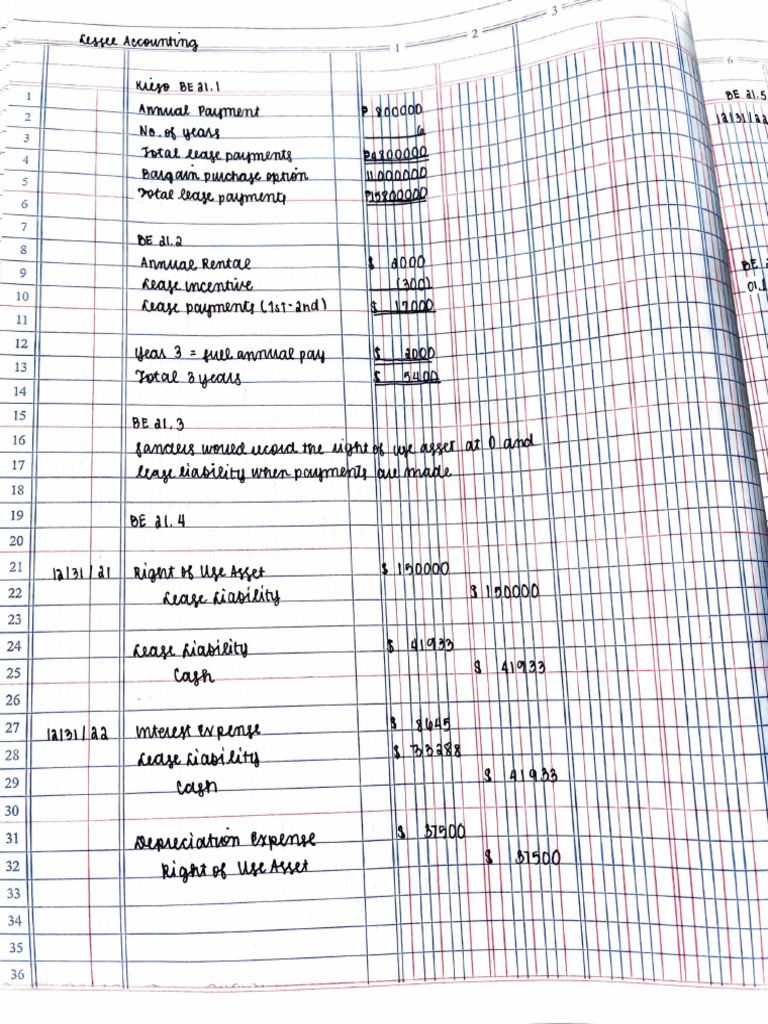 Lessee Accounting
1 2 3
6
Kieso BE 21.1
1
2 Annual Payment ₱ 800000
3 No. of years 6
4 Total lease payments ₱4800000
5 Bargain purchase option 11000000
6 Total lease payments ₱15800000
7
8 BE 21.2
9 Annual Rental $ 2000
10 Lease incentive (300)
11 Lease payments (1st-2nd) $ 17000
12
13 Year 3 = full annual pay $ 2000
14 Total 3 years $ 5400
15
16 BE 21.3
17 Sanders would record the right of use asset at 0 and
18 lease liability when payments are made
19 BE 21.4
20
21 12/31/21 Right of Use Asset $ 150000
22 Lease Liability $ 150000
23
24 Lease Liability $ 41933
25 Cash $ 41933
26
27 12/31/22 Interest Expense $ 8645
28 Lease Liability $ 33288
29 Cash $ 41933
30
31 Depreciation Expense $ 37500
32 Right of Use Asset $ 37500
33
34
35
36
BE 21.5
12/31/22
BE
01.